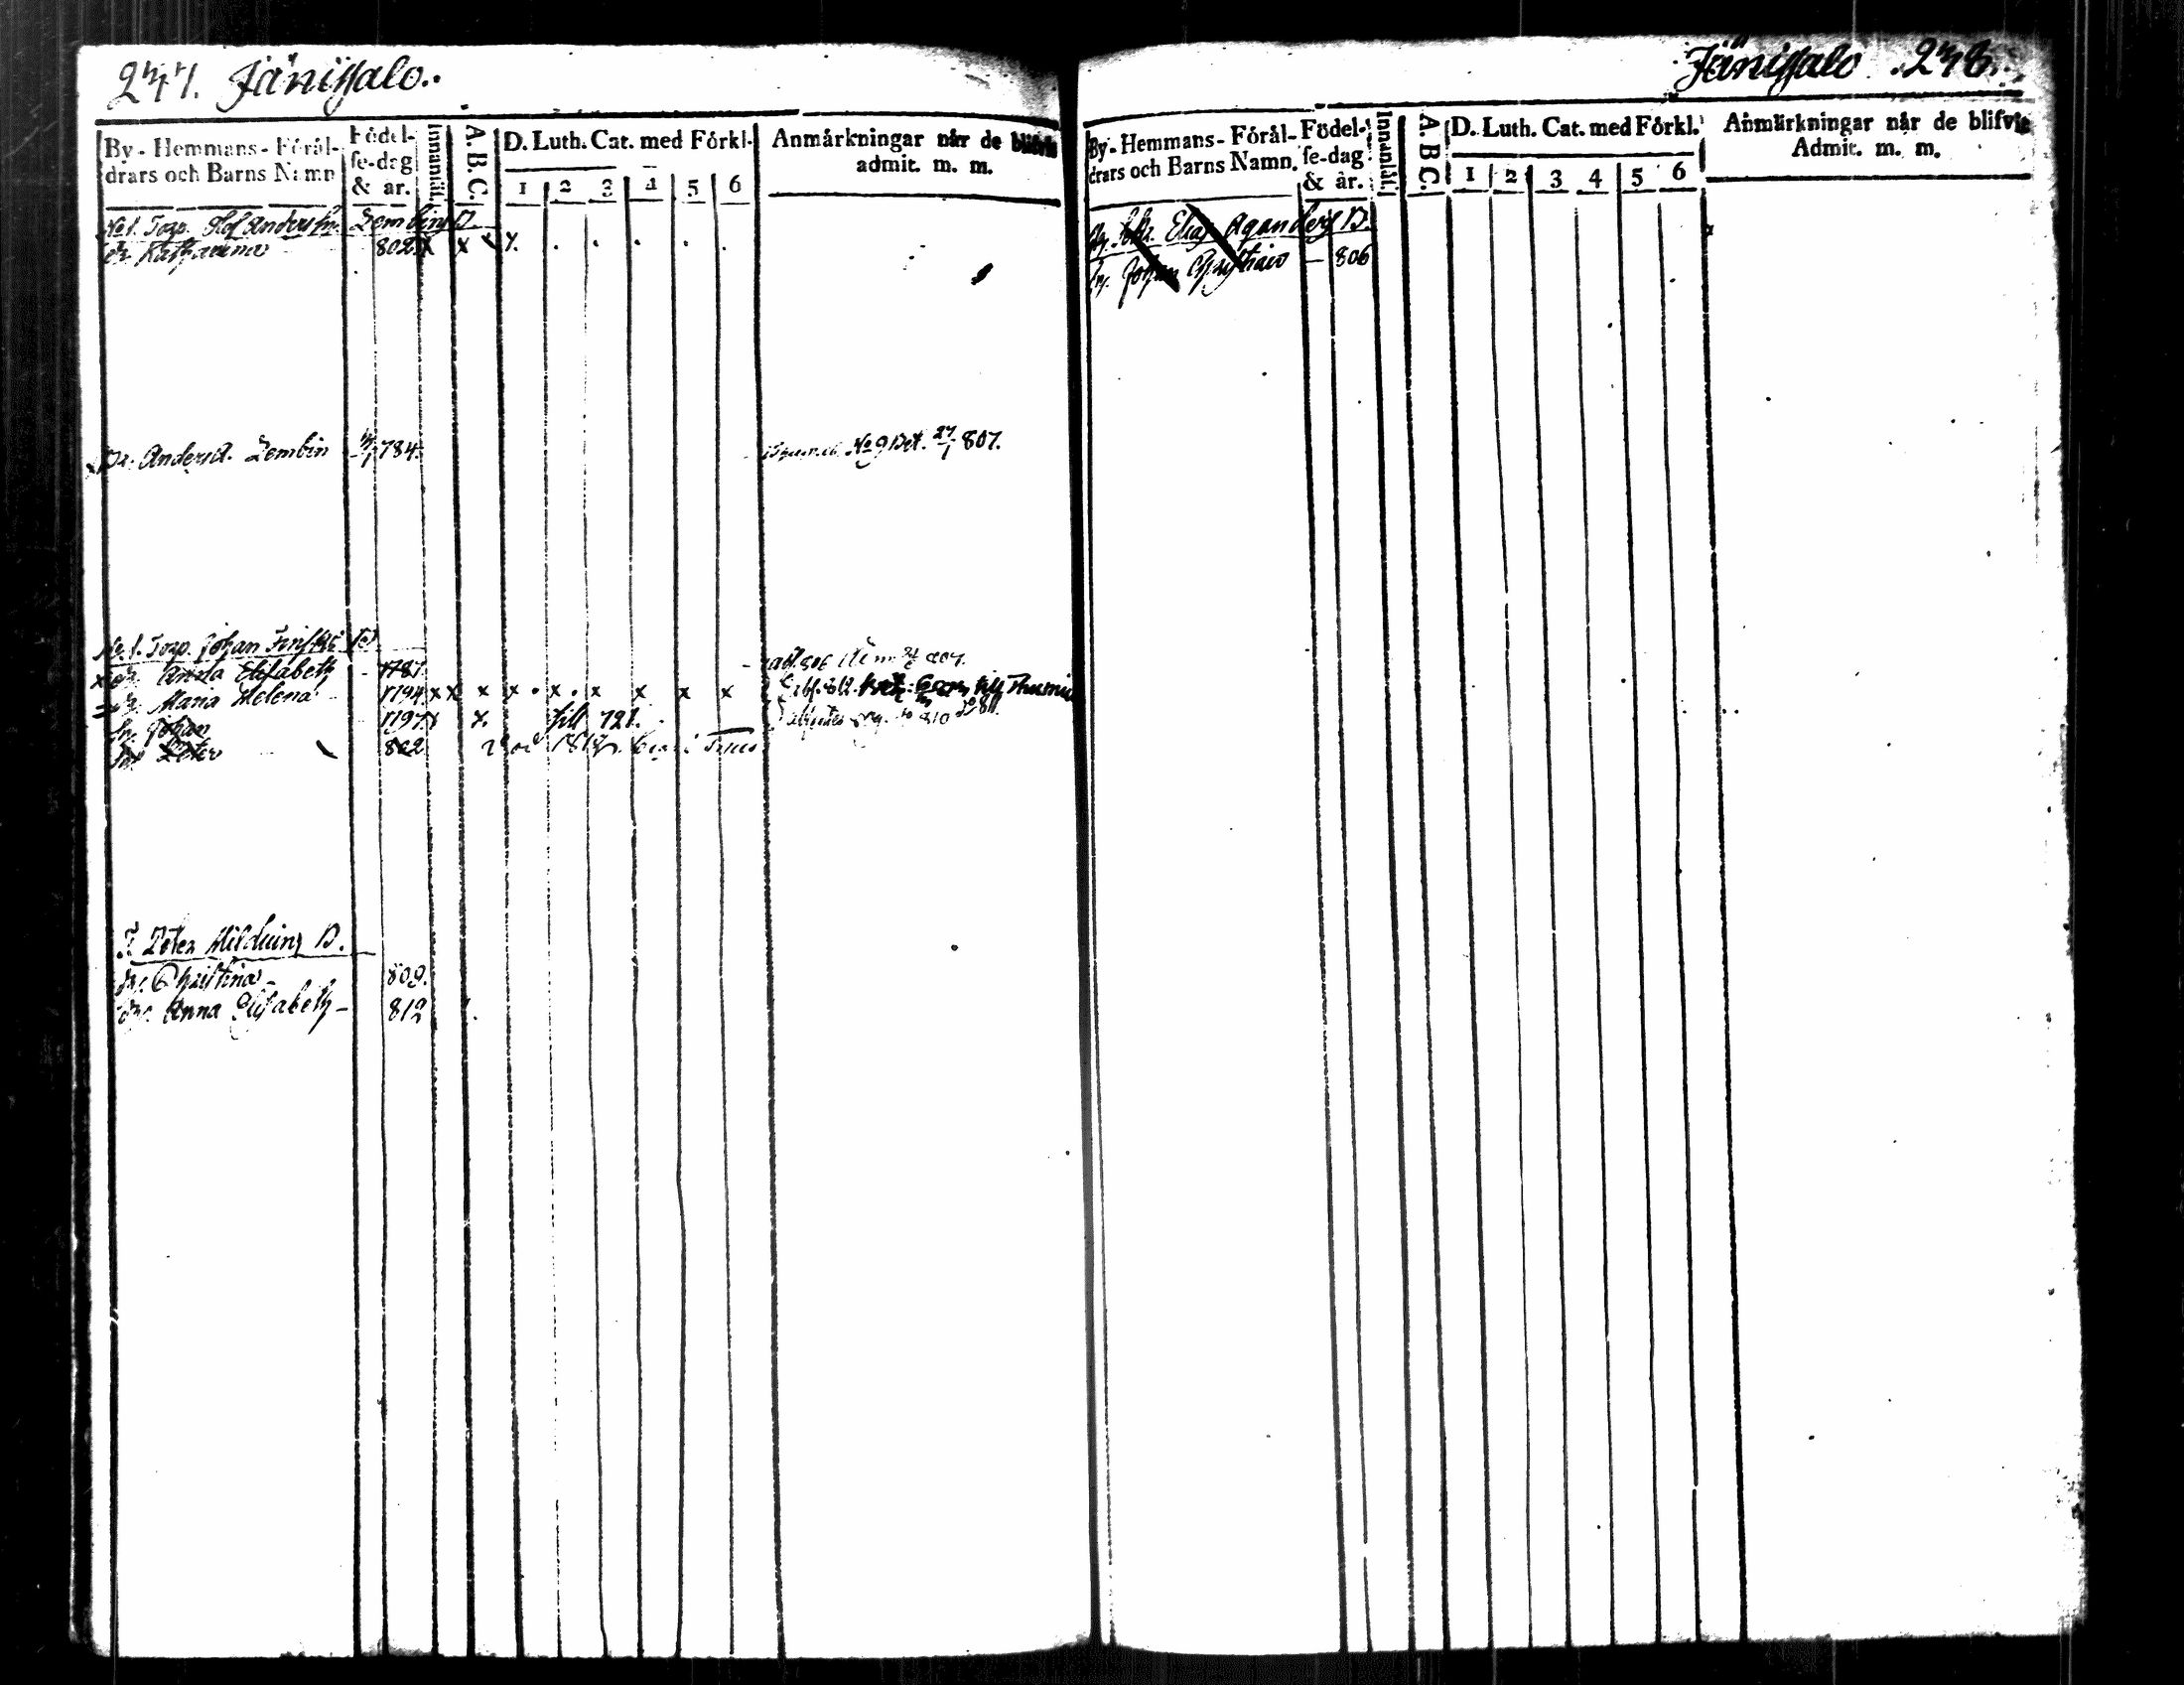 247. Jänissalo.
By- Hemmans- Föräl-
drars och Barns Namn
Födel-
se-dag
& år.
Innanläsn.
A. B. C.
D. Luth. Cat. med Förkl.
1 2 3 4 5 6
Anmärkningar när de blifvit
admit. m. m.
No 1. Torp. Olof Anderss. Lembing B.
Dr. Katharina 802. x x x x
Dr. Anders A. Lembin 784. No 9 Bet. 27/1 807.
No 1. Torp. Johan
Dr. Anna Elisabeth 1787.
Dr. Maria Helena 1794 x x x x . x . x x x x
Sn. Johan 1797 x x. till 721.
Sn. Peter 802
T. Peter B.
Dr. Christina 809.
Dr. Anna Elisabeth - 812
Jänissalo 248.
By- Hemmans- Föräl-
drars och Barns Namn.
Födel-
se-dag
& år.
Innanläsn.
A. B C.
D. Luth. Cat. med Förkl.
1 2 3 4 5 6
Anmärkningar når de blifvit
Admit. m. m.
Elias Aganders B.
Sn. Johan Christian - 806